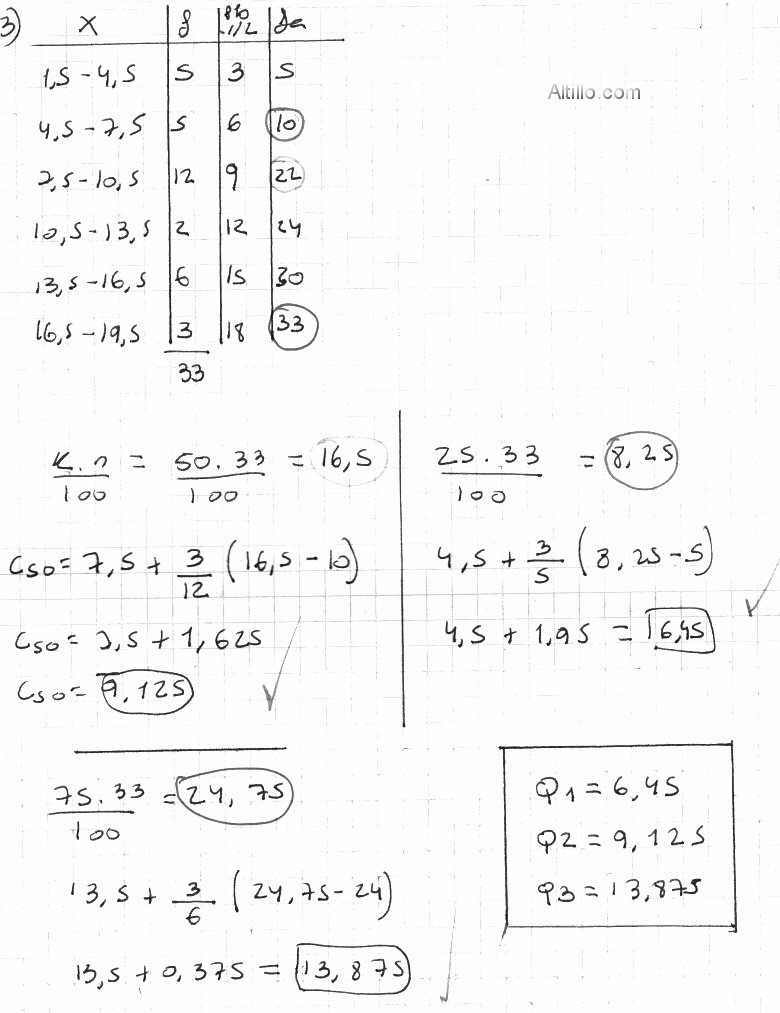 3)
X f pto 1/2 fa
1,5 - 4,5 5 3 5
Altillo.com
4,5 - 7,5 5 6 10
7,5 - 10,5 12 9 22
10,5 - 13,5 2 12 24
13,5 - 16,5 6 15 30
16,5 - 19,5 3 18 33
33
K.n/100 = 50.33/100 = 16,5
25.33/100 = 8,25
C50 = 7,5 + 3/12 (16,5 - 10)
4,5 + 3/5 (8,25 - 5)
C50 = 7,5 + 1,625
4,5 + 1,95 = 6,45
C50 = 9,125
75.33/100 = 24,75
Q1 = 6,45
Q2 = 9,125
Q3 = 13,875
13,5 + 3/6 (24,75 - 24)
13,5 + 0,375 = 13,875